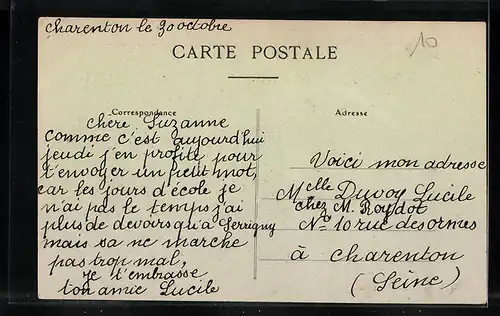 Charenton le 30 octobre
10
CARTE POSTALE
Correspondance
Adresse
chère Suzanne
comme c'est aujourd'hui
jeudi j'en profite pour
t'envoyer un petit mot,
car les jours d'école je
n'ai pas le temps j'ai
plus de devoirs qu'a Serrigny
mais sa ne marche
pas trop mal,
je t'embrasse
ton amie Lucile
Voici mon adresse
Melle Duvoy Lucile
chez M. Roydot
No 10 rue des ormes
à Charenton
(Seine)